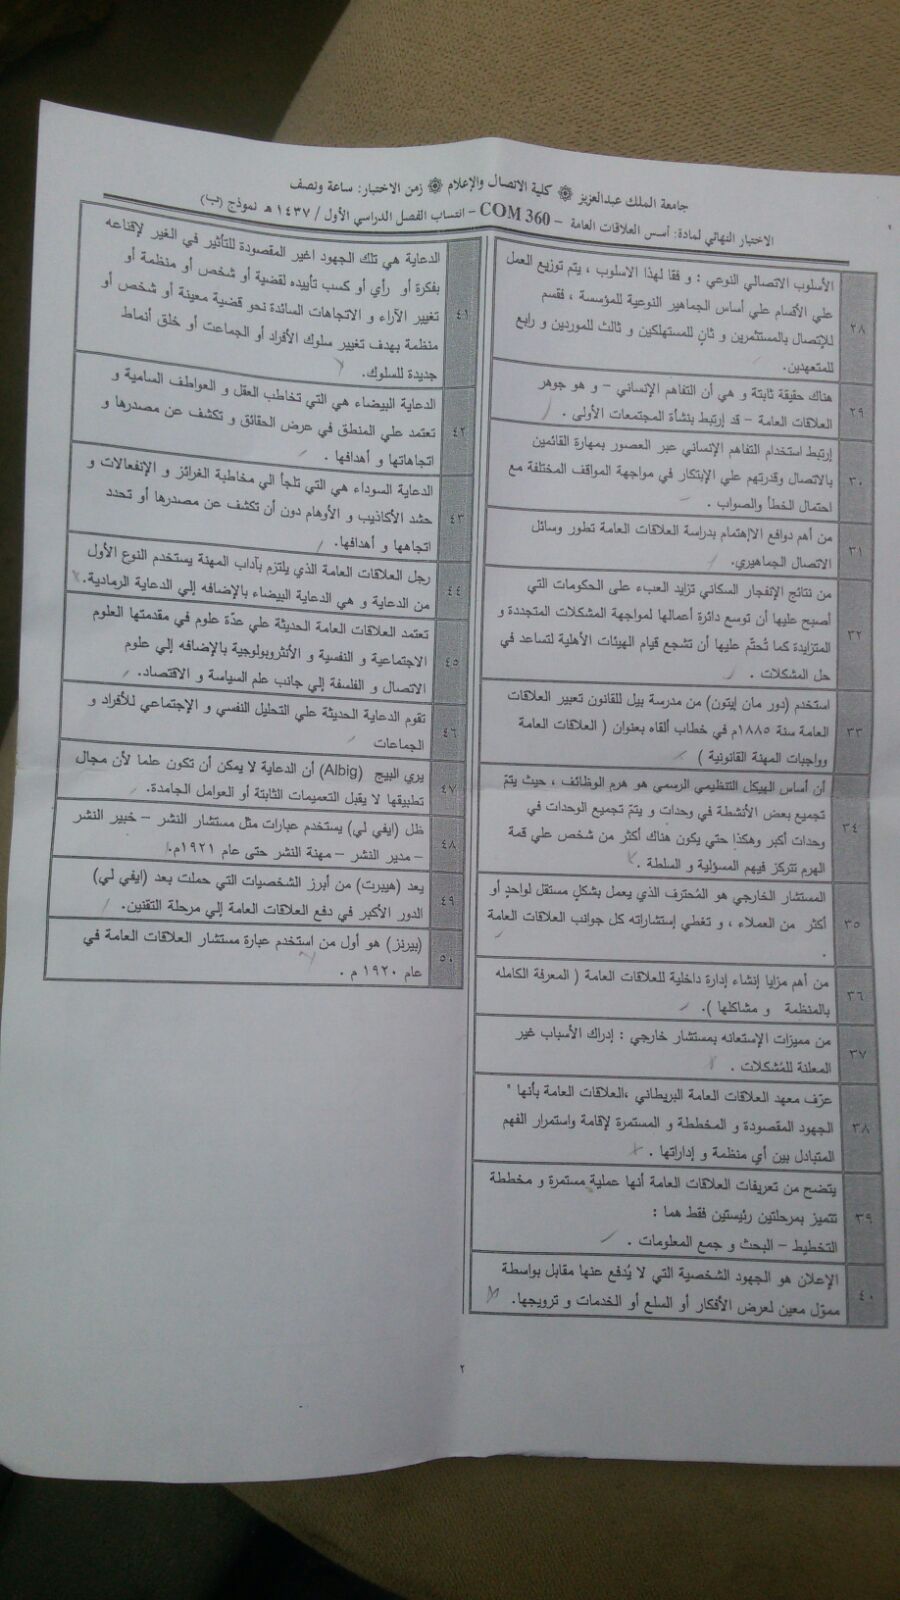 جامعة الملك عبدالعزيز ۞ كلية الاتصال والإعلام ۞ زمن الاختبار: ساعة ونصف
الاختبار النهائي لمادة: أسس العلاقات العامة – COM 360 – انتساب الفصل الدراسي الأول / ١٤٣٧ هـ نموذج (ب)
٢٨ الأسلوب الاتصالي النوعي : و فقا لهذا الاسلوب ، يتم توزيع العمل
علي الأقسام علي أساس الجماهير النوعية للمؤسسة ، فقسم
للإتصال بالمستثمرين و ثانٍ للمستهلكين و ثالث للموردين و رابع
للمتعهدين.
٢٩ هناك حقيقة ثابتة و هي أن التفاهم الإنساني – و هو جوهر
العلاقات العامة – قد إرتبط بنشأة المجتمعات الأولى .
٣٠ إرتبط استخدام التفاهم الإنساني عبر العصور بمهارة القائمين
بالاتصال وقدرتهم علي الإبتكار في مواجهة المواقف المختلفة مع
احتمال الخطأ والصواب .
٣١ من أهم دوافع الااهتمام بدراسة العلاقات العامة تطور وسائل
الاتصال الجماهيري.
٣٢ من نتائج الإنفجار السكاني تزايد العبء على الحكومات التي
أصبح عليها أن توسع دائرة أعمالها لمواجهة المشكلات المتجددة و
المتزايدة كما تُحتّم عليها أن تشجع قيام الهيئات الأهلية لتساعد في
حل المشكلات .
٣٣ استخدم (دور مان إيتون) من مدرسة بيل للقانون تعبير العلاقات
العامة سنة ١٨٨٥م في خطاب ألقاه بعنوان ( العلاقات العامة
وواجبات المهنة القانونية )
٣٤ أن أساس الهيكل التنظيمي الرسمي هو هرم الوظائف ، حيث يتمّ
تجميع بعض الأنشطة في وحدات و يتمّ تجميع الوحدات في
وحدات أكبر وهكذا حتي يكون هناك أكثر من شخص علي قمة
الهرم تتركز فيهم المسؤلية و السلطة .
٣٥ المستشار الخارجي هو المُحترف الذي يعمل بشكلٍ مستقل لواحدٍ أو
أكثر من العملاء ، و تغطي إستشاراته كل جوانب العلاقات العامة
.
٣٦ من أهم مزايا إنشاء إدارة داخلية للعلاقات العامة ( المعرفة الكامله
بالمنظمة و مشاكلها ).
٣٧ من مميزات الإستعانه بمستشار خارجي : إدراك الأسباب غير
المعلنة للمُشكلات .
٣٨ عرّف معهد العلاقات العامة البريطاني ،العلاقات العامة بأنها "
الجهود المقصودة و المخططة و المستمرة لإقامة واستمرار الفهم
المتبادل بين أي منظمة و إداراتها .
٣٩ يتضح من تعريفات العلاقات العامة أنها عملية مستمرة و مخططة
تتميز بمرحلتين رئيستين فقط هما :
التخطيط – البحث و جمع المعلومات .
٤٠ الإعلان هو الجهود الشخصية التي لا يُدفع عنها مقابل بواسطة
مموّل معين لعرض الأفكار أو السلع أو الخدمات و ترويجها.
٤١ الدعاية هي تلك الجهود اغير المقصودة للتأثير في الغير لإقناعه
بفكرة أو رأي أو كسب تأييده لقضية أو شخص أو منظمة أو
تغيير الآراء و الاتجاهات السائدة نحو قضية معينة أو شخص أو
منظمة بهدف تغيير سلوك الأفراد أو الجماعت أو خلق أنماط
جديدة للسلوك.
٤٢ الدعاية البيضاء هي التي تخاطب العقل و العواطف السامية و
تعتمد علي المنطق في عرض الحقائق و تكشف عن مصدرها و
اتجاهاتها و أهدافها .
٤٣ الدعاية السوداء هي التي تلجأ الي مخاطبة الغرائز و الإنفعالات و
حشد الأكاذيب و الأوهام دون أن تكشف عن مصدرها أو تحدد
اتجاهها و أهدافها.
٤٤ رجل العلاقات العامة الذي يلتزم بآداب المهنة يستخدم النوع الأول
من الدعاية و هي الدعاية البيضاء بالإضافه إلي الدعاية الرمادية.
٤٥ تعتمد العلاقات العامة الحديثة علي عدّة علوم في مقدمتها العلوم
الاجتماعية و النفسية و الأنثروبولوجية بالإضافه إلي علوم
الاتصال و الفلسفة إلي جانب علم السياسة و الاقتصاد.
٤٦ تقوم الدعاية الحديثة علي التحليل النفسي و الإجتماعي للأفراد و
الجماعات
٤٧ يري البيج (Albig) أن الدعاية لا يمكن أن تكون علما لأن مجال
تطبيقها لا يقبل التعميمات الثابتة أو العوامل الجامدة.
٤٨ ظل (ايفي لي) يستخدم عبارات مثل مستشار النشر – خبير النشر
– مدير النشر – مهنة النشر حتى عام ١٩٢١م.
٤٩ يعد (هيبرت) من أبرز الشخصيات التي حملت بعد (ايفي لي)
الدور الأكبر في دفع العلاقات العامة إلي مرحلة التقنين.
٥٠ (بيرنز) هو أول من استخدم عبارة مستشار العلاقات العامة في
عام ١٩٢٠ م .
٢